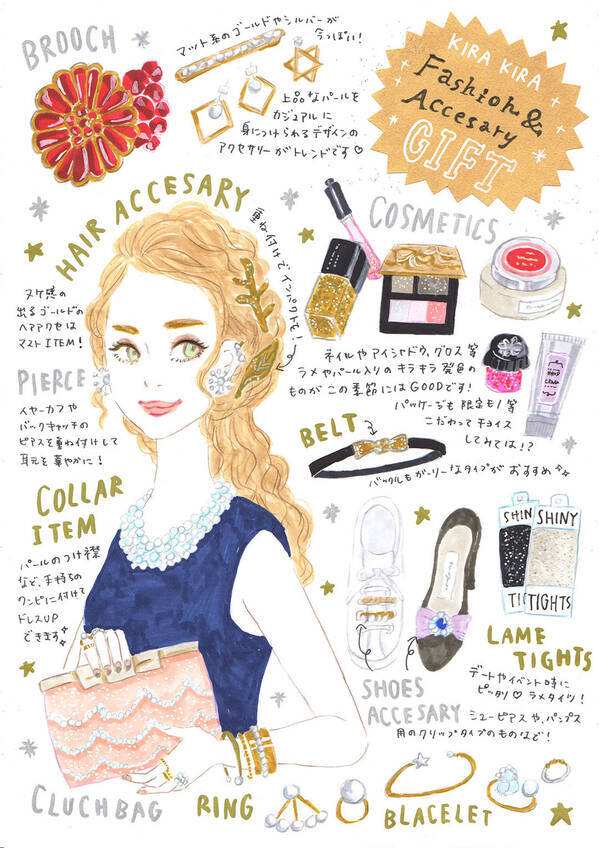 BROOCH
マット系のゴールドやシルバーが
今っぽい!
KIRA KIRA
Fashion &
Accesary
GIFT
上品なパールを
カジュアルに
身につけられるデザインの
アクセサリーがトレンドです♡
HAIR ACCESARY
重ね付けで、インパクト大!
ヌケ感の
出るゴールドの
ヘアアクセは
マストITEM!
COSMETICS
ネイルやアイシャドウ、グロス等
ラメやパール入りのキラキラ発色の
ものがこの季節にはGOODです!
パッケージも限定もノ等
こだわってチョイス
してみては!?
PIERCE
イヤーカフや
バックキャッチの
ピアスを重ね付けして
耳元を華やかに!
BELT
バックルもガーリーなタイプがおすすめ
COLLAR
ITEM
パールのつけ襟
など、手持ちの
ワンピに付けて
ドレスUP
できます
SHIN
SHINY
TI
TIGHTS
LAME
TIGHTS
デートやイベント時に
ピッタリ♡ラメタイツ!
SHOES
ACCESARY
シューピアスや、パンプス
用のクリップタイプのものなど!
CLUCHBAG
RING
BLACELET